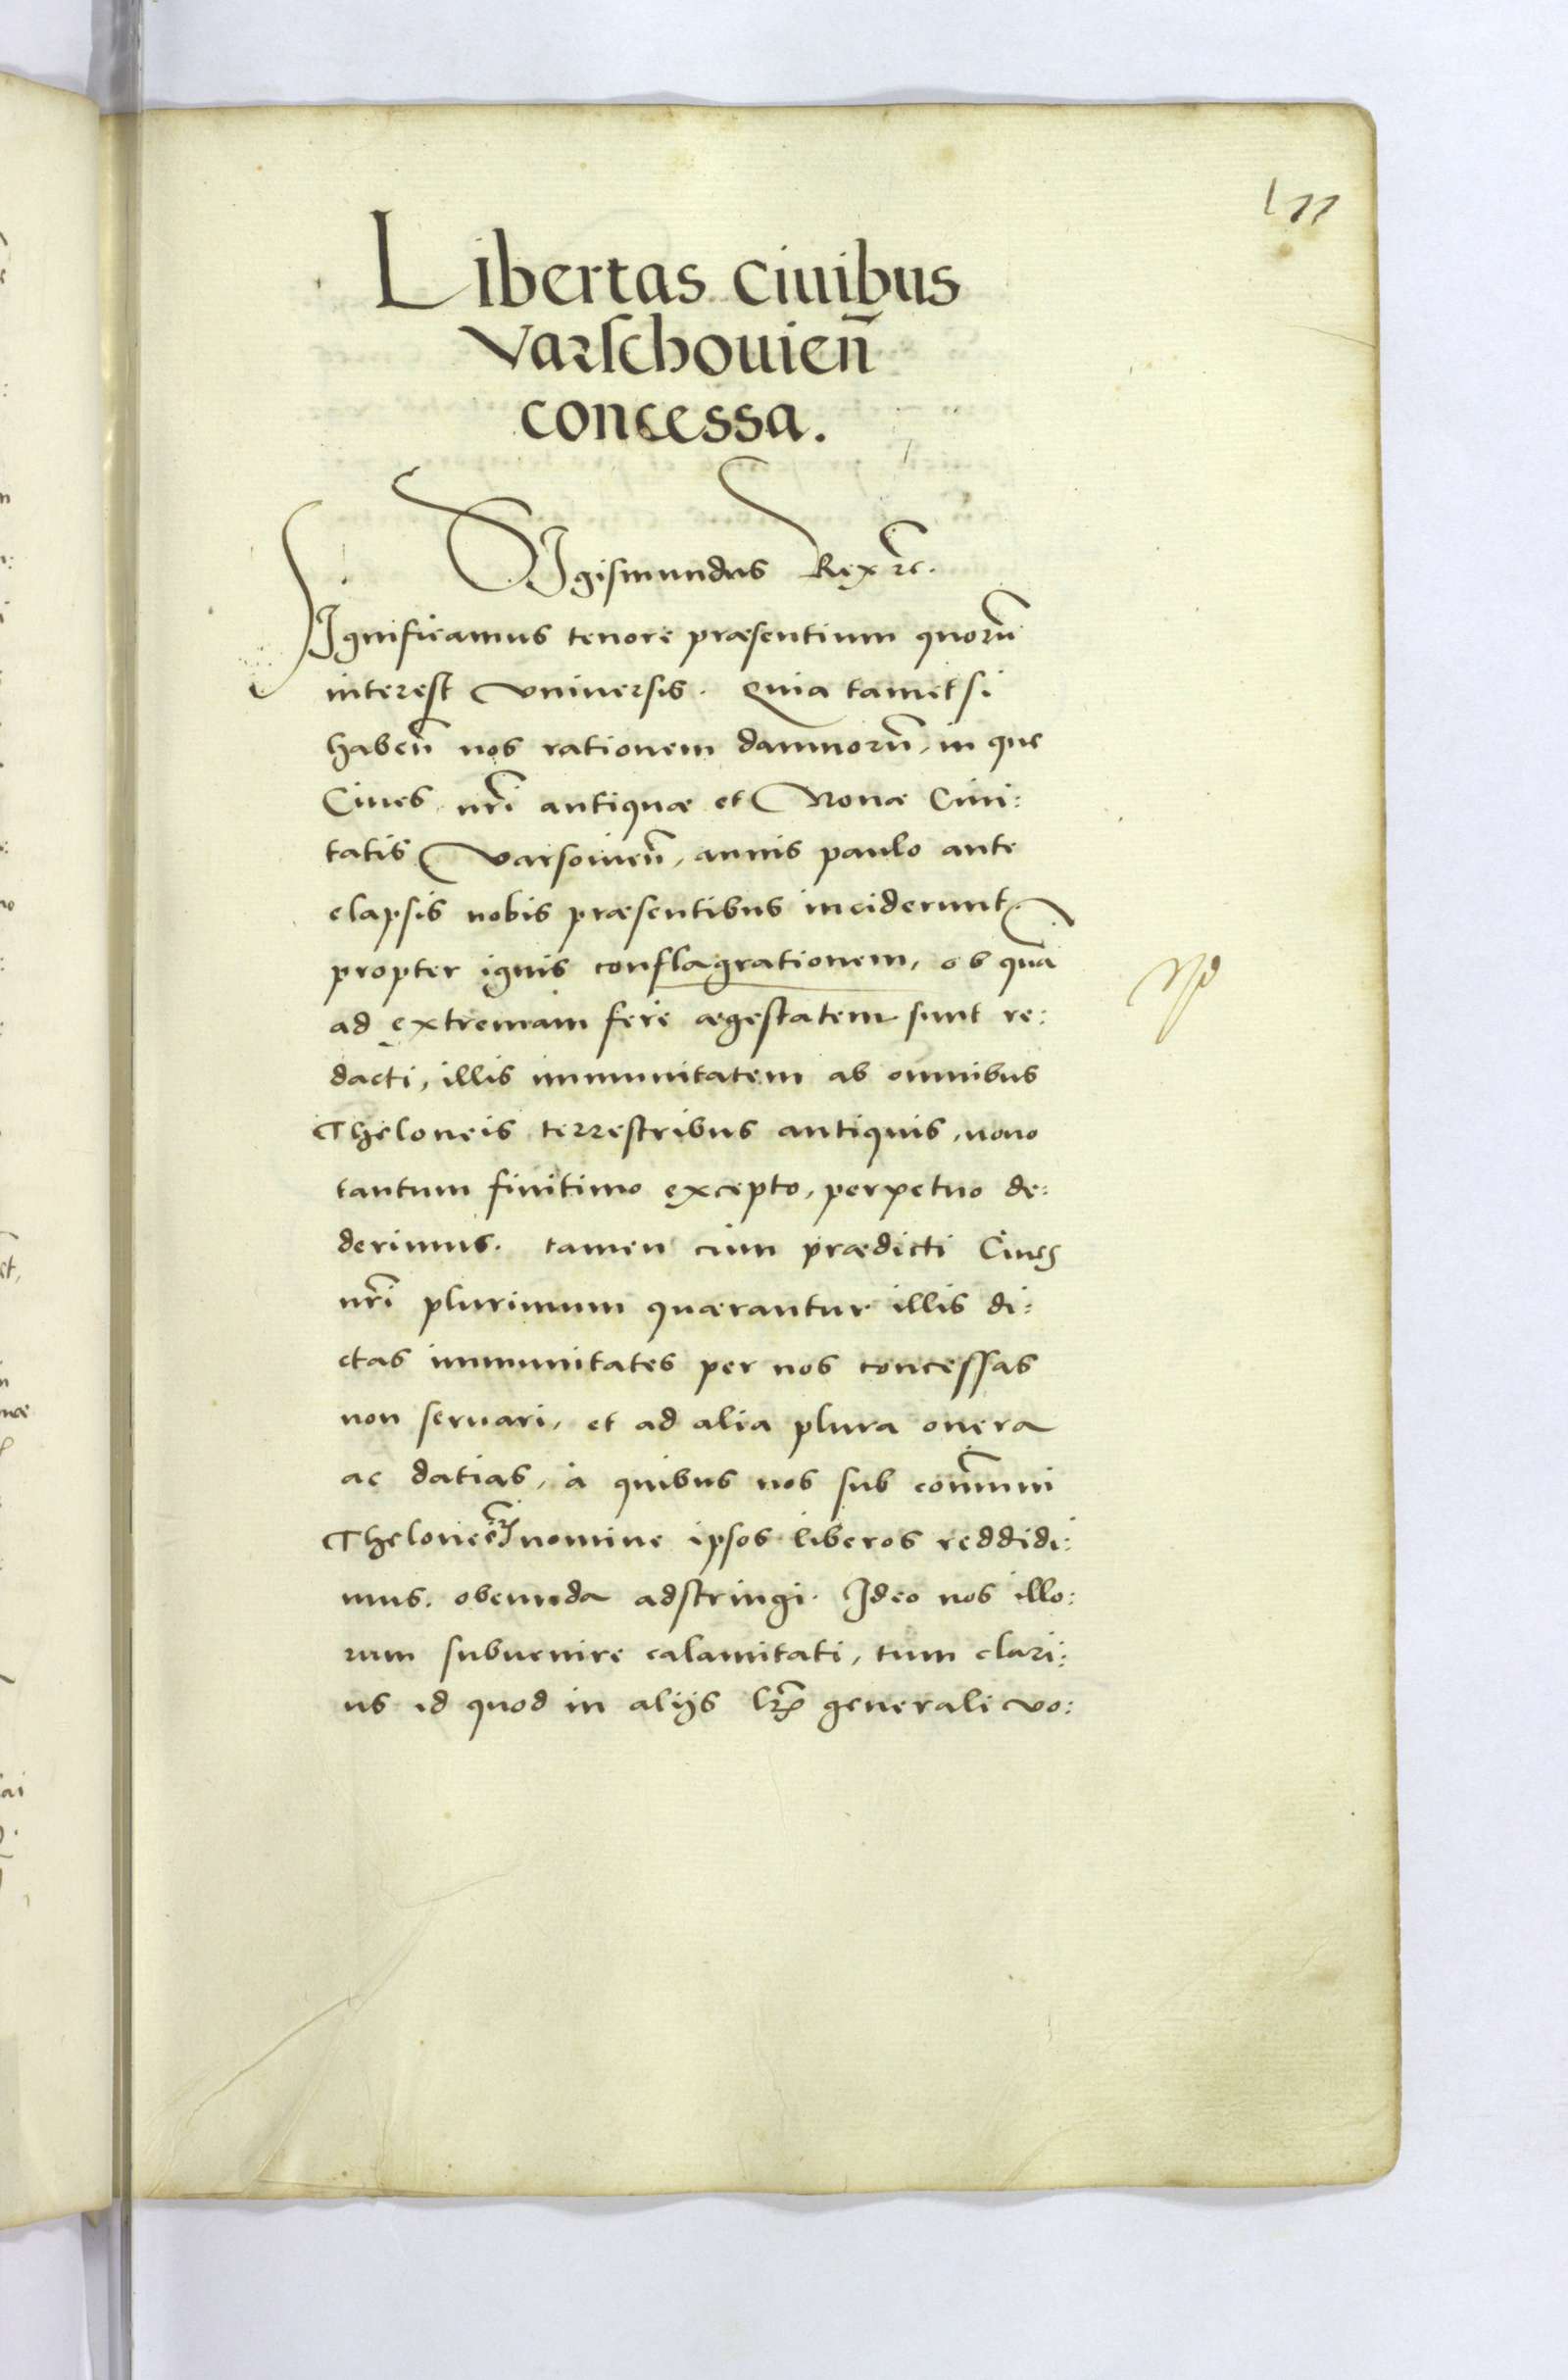 Libertas ciuibus
Varschouien̄
concessa.
SIgismundus Rex ꝛc.
SIgnificamus tenore præsentium quorū
interest vniuersis. Quia tametsi
haben̄ nos rationem damnorū, in que
Ciues nr̄i antiquæ et Nouæ Ciui:
tatis Varsouien̄, annis paulo ante
elapsis nobis præsentibus inciderunt
propter ignis conflagrationem, ob quā
ad extremam fere ægestatem sunt re:
dacti, illis immunitatem ab omnibus
Theloneis terrestribus antiquis, nouo
tantum finitimo excepto, perpetuo de:
derimus. tamen cum prædicti Ciues
nr̄i plurimum quærantur illis di:
ctas immunitates per nos concessas
non seruari, et ad alia plura onera
ac datias, à quibus nos sub com̄uni
Theloneoꝝ nomine ipsos liberos reddidi:
mus. obeunda adstringi. Ideo nos illo:
rum subuenire calamitati, tum clari:
us id quod in alijs lr̄is generali vo: